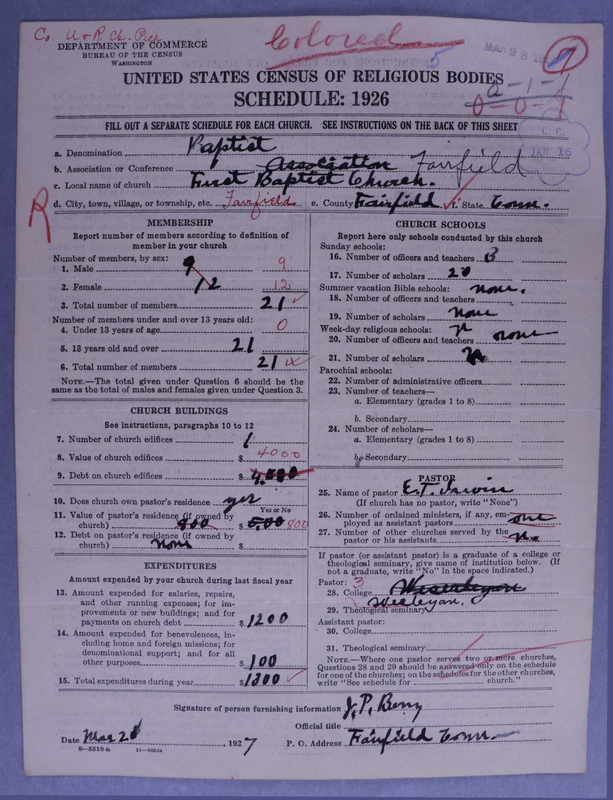 Co. A & R. Ch. Pick
Colored
DEPARTMENT OF COMMERCE
BUREAU OF THE CENSUS
WASHINGTON
5
MAR 28
7
UNITED STATES CENSUS OF RELIGIOUS BODIES
a-1-1
SCHEDULE: 1926
0-0-1
FILL OUT A SEPARATE SCHEDULE FOR EACH CHURCH. SEE INSTRUCTIONS ON THE BACK OF THIS SHEET
C. C.
JAN 16
a. Denomination Baptist
b. Association or Conference Association Fairfield
c. Local name of church First Baptist Church.
d. City, town, village, or township, etc. Fairfield e. County Fairfield f. State Conn.
R
MEMBERSHIP
Report number of members according to definition of
member in your church
Number of members, by sex:
1. Male 9 9
2. Female 12 12
3. Total number of members 21
Number of members under and over 13 years old:
4. Under 13 years of age 0
5. 13 years old and over 21
6. Total number of members 21
NOTE.—The total given under Question 6 should be the
same as the total of males and females given under Question 3.
CHURCH BUILDINGS
See instructions, paragraphs 10 to 12
7. Number of church edifices 1
8. Value of church edifices $ 4000
9. Debt on church edifices $ 4,000
10. Does church own pastor's residence yes
Yes or No
11. Value of pastor's residence (if owned by
church) 800 $ 5,00 800
12. Debt on pastor's residence (if owned by
church) none
EXPENDITURES
Amount expended by your church during last fiscal year
13. Amount expended for salaries, repairs,
and other running expenses; for im-
provements or new buildings; and for
payments on church debt $ 1200
14. Amount expended for benevolences, in-
cluding home and foreign missions; for
denominational support; and for all
other purposes $ 100
15. Total expenditures during year $ 1300
CHURCH SCHOOLS
Report here only schools conducted by this church
Sunday schools:
16. Number of officers and teachers 3
17. Number of scholars 20
Summer vacation Bible schools: none.
18. Number of officers and teachers
19. Number of scholars none
Week-day religious schools: n
20. Number of officers and teachers none
21. Number of scholars n
Parochial schools:
22. Number of administrative officers
23. Number of teachers—
a. Elementary (grades 1 to 8)
b. Secondary
24. Number of scholars—
a. Elementary (grades 1 to 8)
b. Secondary
PASTOR
25. Name of pastor E. T. Irwin
(If church has no pastor, write "None")
26. Number of ordained ministers, if any, em-
ployed as assistant pastors one
27. Number of other churches served by the
pastor or his assistants No.
If pastor (or assistant pastor) is a graduate of a college or
theological seminary, give name of institution below. (If
not a graduate, write "No" in the space indicated.)
Pastor: 3
28. College Weserleyan
Wesleyan,
29. Theological seminary
Assistant pastor:
30. College
31. Theological seminary
NOTE.—Where one pastor serves two or more churches,
Questions 28 and 29 should be answered only on the schedule
for one of the churches; on the schedules for the other churches,
write "See schedule for church."
Signature of person furnishing information J. P. Berry
Official title
Date Mar 28, 1927 P. O. Address Fairfield Conn.